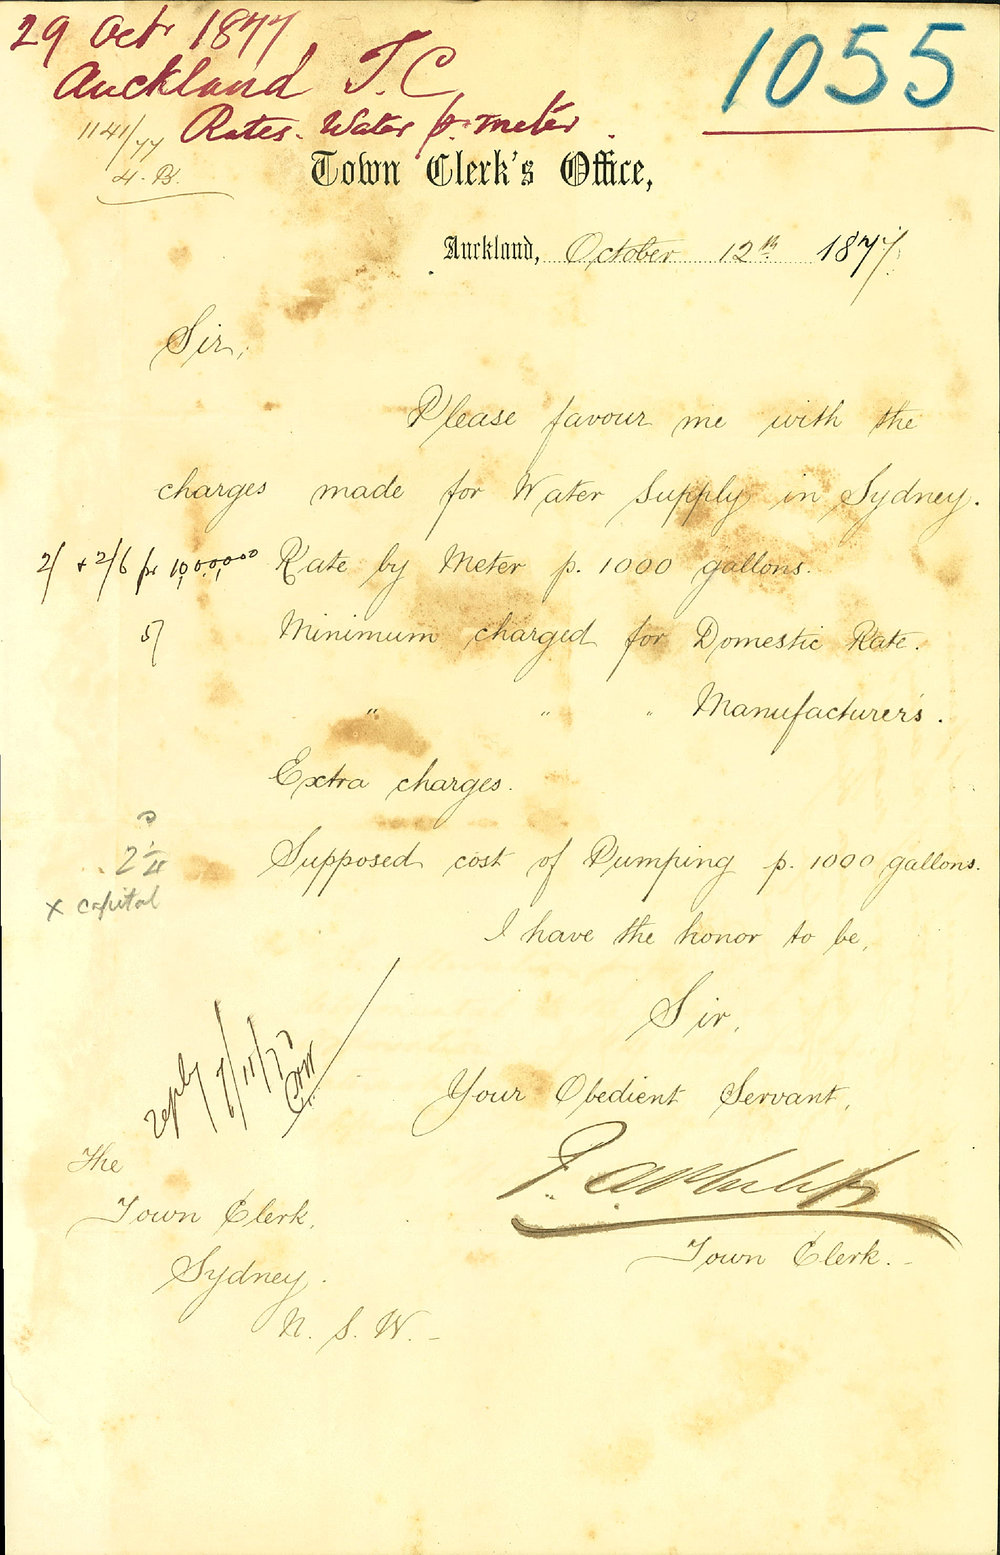 29 Oct 1877
1055
Auckland T. C
Rates. Water p. meter.
1141/77
4. B.
Town Clerk's Office,
Auckland, October 12th 1877.
Sir,
Please favour me with the
charges made for Water Supply in Sydney.
2/ + 2/6 pr Rate by Meter p. 1000 gallons.
5/ Minimum charged for Domestic Rate.
" " " Manufacturers.
Extra charges.
Supposed cost of Pumping p. 1000 gallons.
x capital
I have the honor to be,
Sir,
Your Obedient Servant,
reply 7/11/77
The
Town Clerk,
Sydney.
N. S. W.
P. A. Philips
Town Clerk.